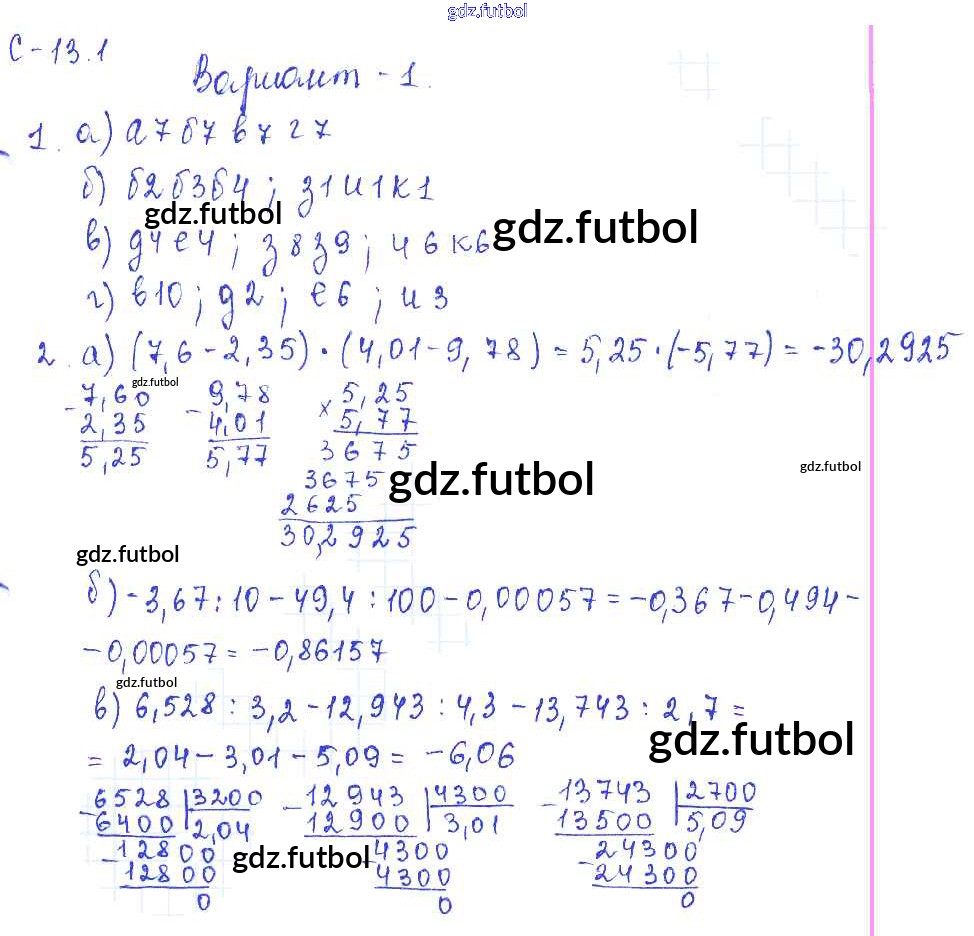 gdz.futbol
С-13.1
Вариант-1.
1. а) а7 б7 в7 г7
б) б2 б3 б4 ; з1 и1 к1
gdz.futbol
gdz.futbol
в) д4 е4 ; з8 з9 ; и6 к6
г) в10 ; д2 ; е6 ; и3
2. а) (7,6-2,35)·(4,01-9,78) = 5,25·(-5,77) = -30,2925
gdz.futbol
- 7,60 - 9,78 × 5,25
2,35 4,01 5,77
5,25 5,77 3675
gdz.futbol
3675
gdz.futbol
2625
30,2925
gdz.futbol
б) -3,67:10-49,4:100-0,00057=-0,367-0,494-
-0,00057=-0,86157
gdz.futbol
в) 6,528 : 3,2 - 12,943 : 4,3 - 13,743 : 2,7 =
gdz.futbol
= 2,04 - 3,01 - 5,09 = -6,06
- 6528 | 3200 - 12943 | 4300 - 13743 | 2700
6400 | 2,04 12900 | 3,01 13500 | 5,09
- 12800 - 4300 - 24300
gdz.futbol
12800 4300 24300
0 0 0